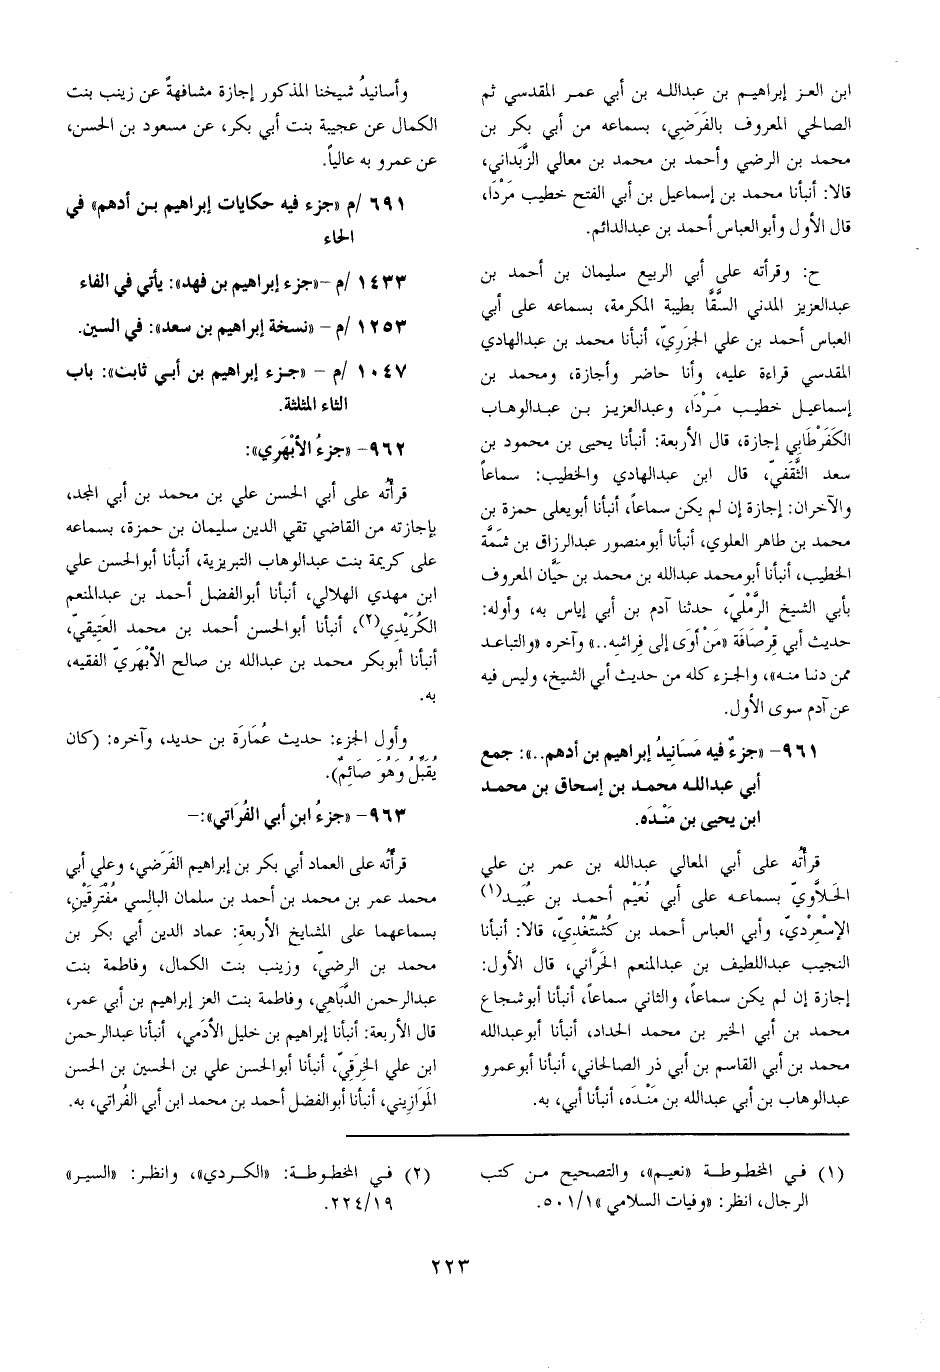 ابن العز إبراهيم بن عبدالله بن أبي عمر المقدسي ثم
الصالحي المعروف بالفَرَضِي، بسماعه من أبي بكر بن
محمد بن الرضي وأحمد بن محمد بن معالي الزَّبَداني،
قالا: أنبأنا محمد بن إسماعيل بن أبي الفتح خطيب مَرْدَا،
قال الأول وأبوالعباس أحمد بن عبدالدائم.
ح: وقرأته على أبي الربيع سليمان بن أحمد بن
عبدالعزيز المدني السقَّا بطيبة المكرمة، بسماعه على أبي
العباس أحمد بن علي الجزَريّ، أنبأنا محمد بن عبدالهادي
المقدسي قراءة عليه، وأنا حاضر وأجازة، ومحمد بن
إسماعيل خطيب مَرْدَا، وعبدالعزيز بن عبدالوهاب
الكَفَرْطَابي إجازة، قال الأربعة: أنبأنا يحيى بن محمود بن
سعد الثَّقَفيّ، قال ابن عبدالهادي والخطيب: سماعاً
والآخران: إجازة إن لم يكن سماعاً، أنبأنا أبويعلى حمزة بن
محمد بن طاهر العلوي، أنبأنا أبومنصور عبدالرزاق بن شَمَّة
الخطيب، أنبأنا أبومحمد عبدالله بن محمد بن حَيَّان المعروف
بأبي الشيخ الرَّمْليّ، حدثنا آدم بن أبي إياس به، وأوله:
حديث أبي قِرْصَافَة «مَنْ أوَى إلى فِراشِه..» وآخره «والتباعد
ممن دنا منه»، والجزء كله من حديث أبي الشيخ، وليس فيه
عن آدم سوى الأول.
٩٦١- «جزءٌ فيه مَسَانِيدُ إبراهيم بن أدهم..»: جمع
أبي عبدالله محمد بن إسحاق بن محمد
ابن يحيى بن مَنْدَه.
قرأتُه على أبي المعالي عبدالله بن عمر بن علي
الحَلاَّويّ بسماعه على أبي نُعَيْم أحمد بن عُبَيد(١)
الإسْعِرْديّ، وأبي العباس أحمد بن كُشْتُغْديّ، قالا: أنبأنا
النجيب عبداللطيف بن عبدالمنعم الحَرَّاني، قال الأول:
إجازة إن لم يكن سماعاً، والثاني سماعاً، أنبأنا أبوشجاع
محمد بن أبي الخير بن محمد الحداد، أنبأنا أبوعبدالله
محمد بن أبي القاسم بن أبي ذر الصالحاني، أنبأنا أبوعمرو
عبدالوهاب بن أبي عبدالله بن مَنْدَه، أنبأنا أبي، به.
وأسانيدُ شيخنا المذكور إجازة مشافهةً عن زينب بنت
الكمال عن عجيبة بنت أبي بكر، عن مسعود بن الحسن،
عن عمرو به عالياً.
٦٩١ /م «جزء فيه حكايات إبراهيم بن أدهم» في
الحاء
١٤٣٣ /م -«جزء إبراهيم بن فهد»: يأتي في الفاء
١٢٥٣ /م - «نسخة إبراهيم بن سعد»: في السين.
١٠٤٧ /م - «جزء إبراهيم بن أبي ثابت»: باب
الثاء المثلثة.
٩٦٢- «جزءُ الأَبْهَري»:
قرأتُه على أبي الحسن علي بن محمد بن أبي المجد،
بإجازته من القاضي تقي الدين سليمان بن حمزة، بسماعه
على كريمة بنت عبدالوهاب التبريزية، أنبأنا أبوالحسن علي
ابن مهدي الهلالي، أنبأنا أبوالفضل أحمد بن عبدالمنعم
الكُرَيْدي(٢)، أنبأنا أبوالحسن أحمد بن محمد العَتِيقيّ،
أنبأنا أبوبكر محمد بن عبدالله بن صالح الأَبْهَريّ الفقيه،
به.
وأول الجزء: حديث عُمَارَة بن حديد، وآخره: (كان
يُقَبِّلُ وَهُوَ صَائِمٌ).
٩٦٣- «جزءُ ابنِ أبي الفُرَاتي»:-
قرأتُه على العماد أبي بكر بن إبراهيم الفَرَضي، وعلي أبي
محمد عمر بن محمد بن أحمد بن سلمان البالِسي مُفْتَرِقَيْن،
بسماعهما على المشايخ الأربعة: عماد الدين أبي بكر بن
محمد بن الرضيّ، وزينب بنت الكمال، وفاطمة بنت
عبدالرحمن الدَّبَاهِي، وفاطمة بنت العز إبراهيم بن أبي عمر،
قال الأربعة: أنبأنا إبراهيم بن خليل الأدَمي، أنبأنا عبدالرحمن
ابن علي الخِرَقِيّ، أنبأنا أبوالحسن علي بن الحسين بن الحسن
المَوَازيني، أنبأنا أبوالفضل أحمد بن محمد ابن أبي الفُراتي، به.
(١) في المخطوطة «نعيم»، والتصحيح من كتب
الرجال، انظر: «وفيات السلامي »٥٠١/١.
(٢) في المخطوطة: «الكردي»، وانظر: «السير»
٢٢٤/١٩.
٢٢٣